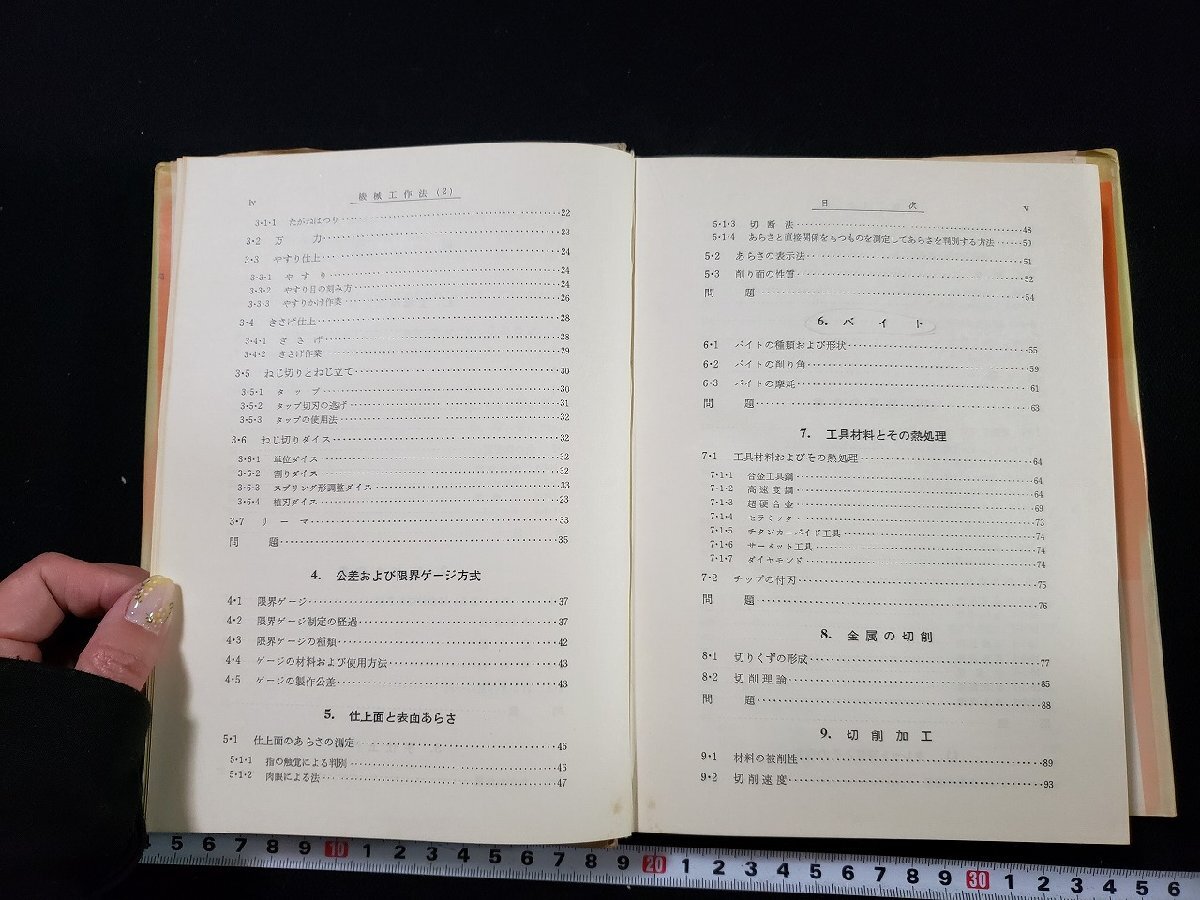 iv
機械工作法(2)
3・1・1 たがねはつり 22
3・2 万力 23
3・3 やすり仕上 24
3・3・1 やすり 24
3・3・2 やすり目の刻み方 24
3・3・3 やすりかけ作業 26
3・4 きさげ仕上 28
3・4・1 きさげ 28
3・4・2 きさげ作業 29
3・5 ねじ切りとねじ立て 30
3・5・1 タップ 30
3・5・2 タップ切刃の逃げ 31
3・5・3 タップの使用法 32
3・6 ねじ切りダイス 32
3・6・1 単位ダイス 32
3・6・2 割りダイス 32
3・6・3 スプリング形調整ダイス 33
3・6・4 植刃ダイス 33
3・7 リーマ 33
問題 35
4. 公差および限界ゲージ方式
4・1 限界ゲージ 37
4・2 限界ゲージ制定の経過 37
4・3 限界ゲージの種類 42
4・4 ゲージの材料および使用方法 43
4・5 ゲージの製作公差 43
5. 仕上面と表面あらさ
5・1 仕上面のあらさの測定 45
5・1・1 指の触覚による判別 45
5・1・2 肉眼による法 47
目次
v
5・1・3 切断法 48
5・1・4 あらさと直接関係をもつものを測定してあらさを判別する方法 50
5・2 あらさの表示法 51
5・3 削り面の性質 52
問題 54
6. バイト
6・1 バイトの種類および形状 55
6・2 バイトの削り角 59
6・3 バイトの摩耗 61
問題 63
7. 工具材料とその熱処理
7・1 工具材料およびその熱処理 64
7・1・1 合金工具鋼 64
7・1・2 高速度鋼 64
7・1・3 超硬合金 69
7・1・4 セラミック 73
7・1・5 チタンカーバイド工具 74
7・1・6 サーメット工具 74
7・1・7 ダイヤモンド 74
7・2 チップの付刃 75
問題 76
8. 金属の切削
8・1 切りくずの形成 77
8・2 切削理論 85
問題 88
9. 切削加工
9・1 材料の被削性 89
9・2 切削速度 93
4 5 6 7 8 9 10 1 2 3 4 5 6 7 8 9 20 1 2 3 4 5 6 7 8 9 30 1 2 3 4 5 6